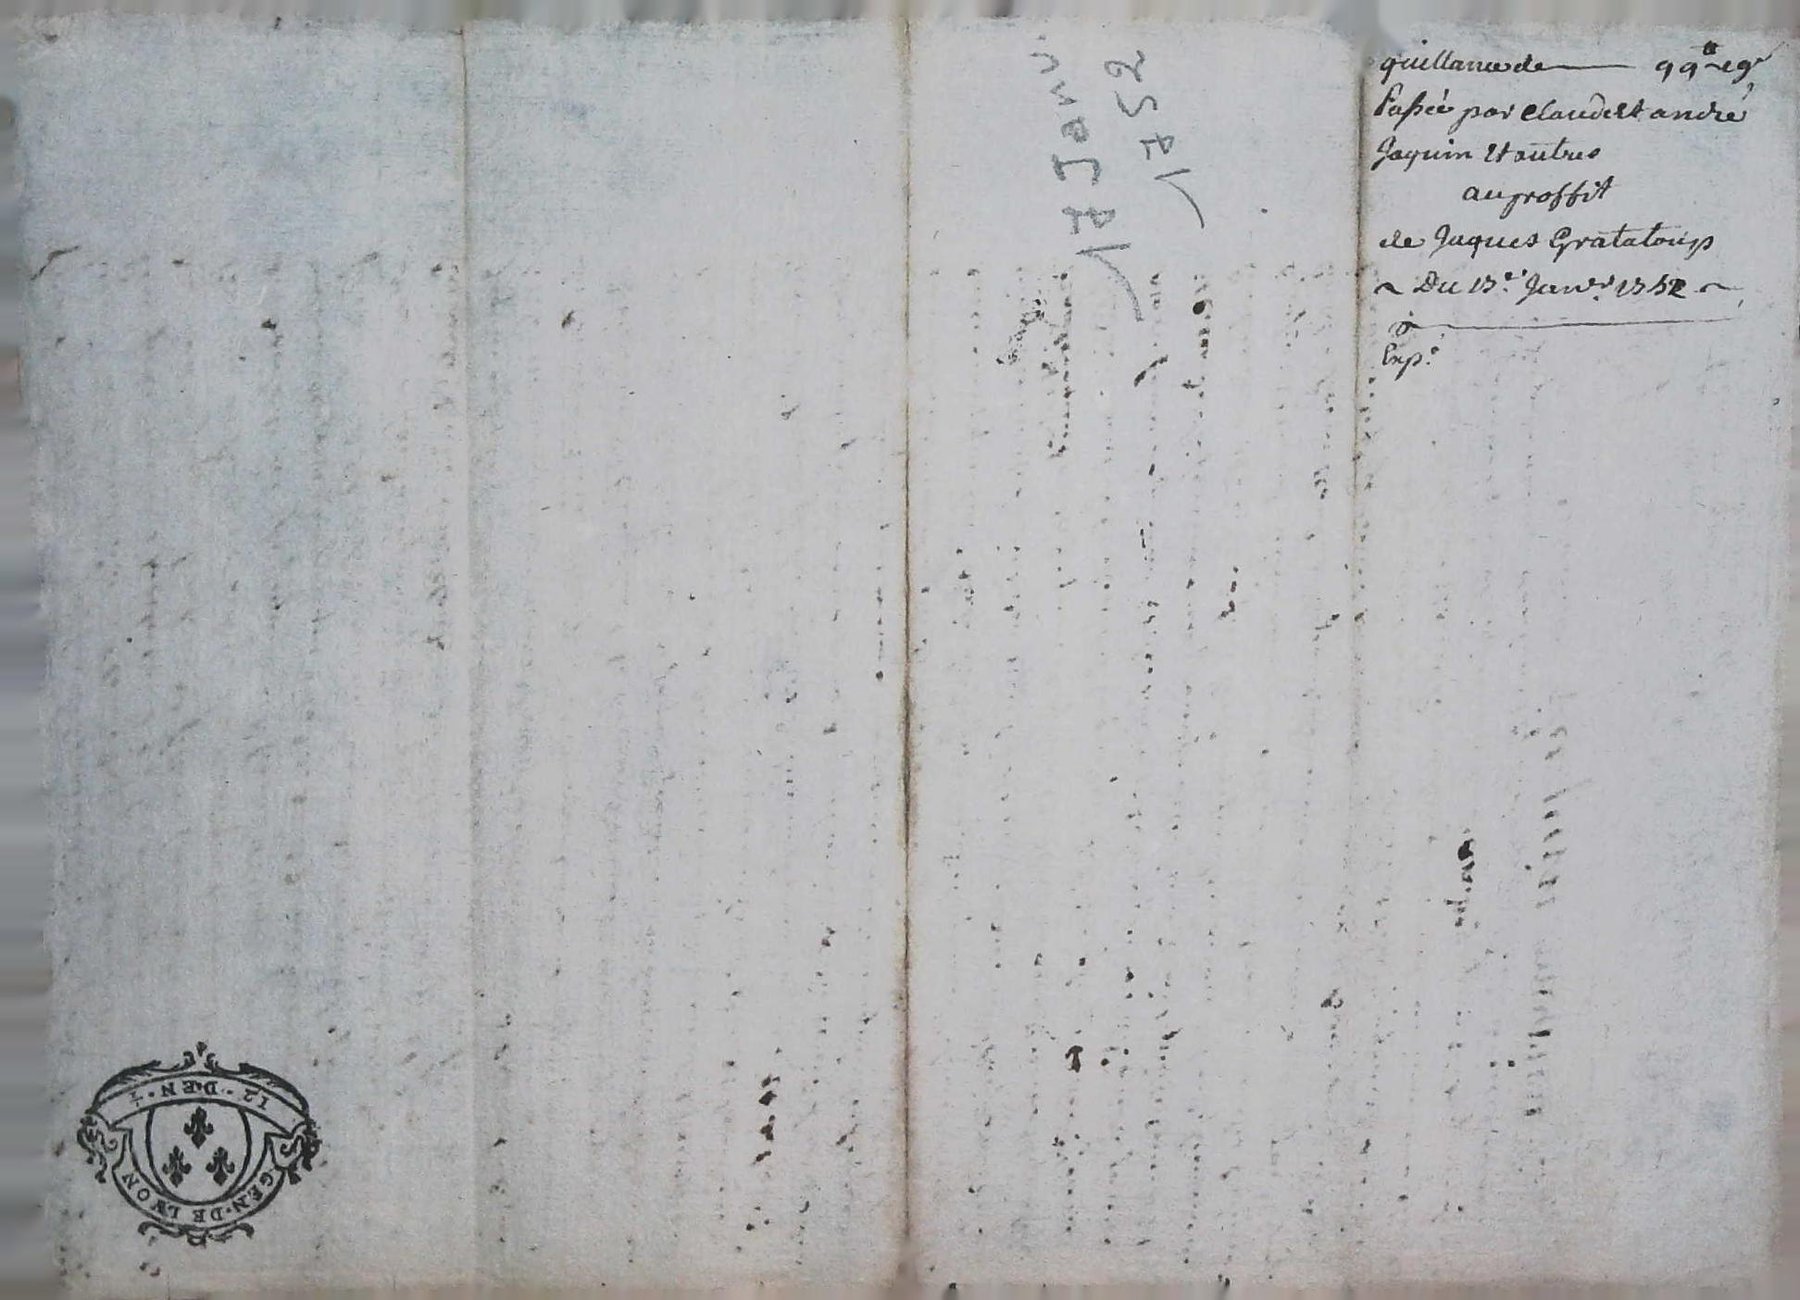 quittance de — 99ᵗᵗ 19ˢ
Passée par Claude et andré
Jaquin Et autres
au proffit
de Jaques Grataloup
~ Du 17.e Janv.r 1752 ~
Exp.e
17 Janv.
1752
12 · DEN · 4
GEN · DE LYON